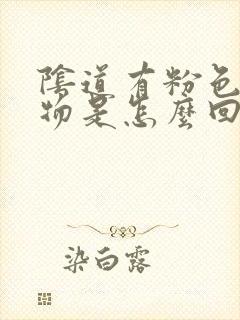 陰道有粉色
物是怎麼回
染白露